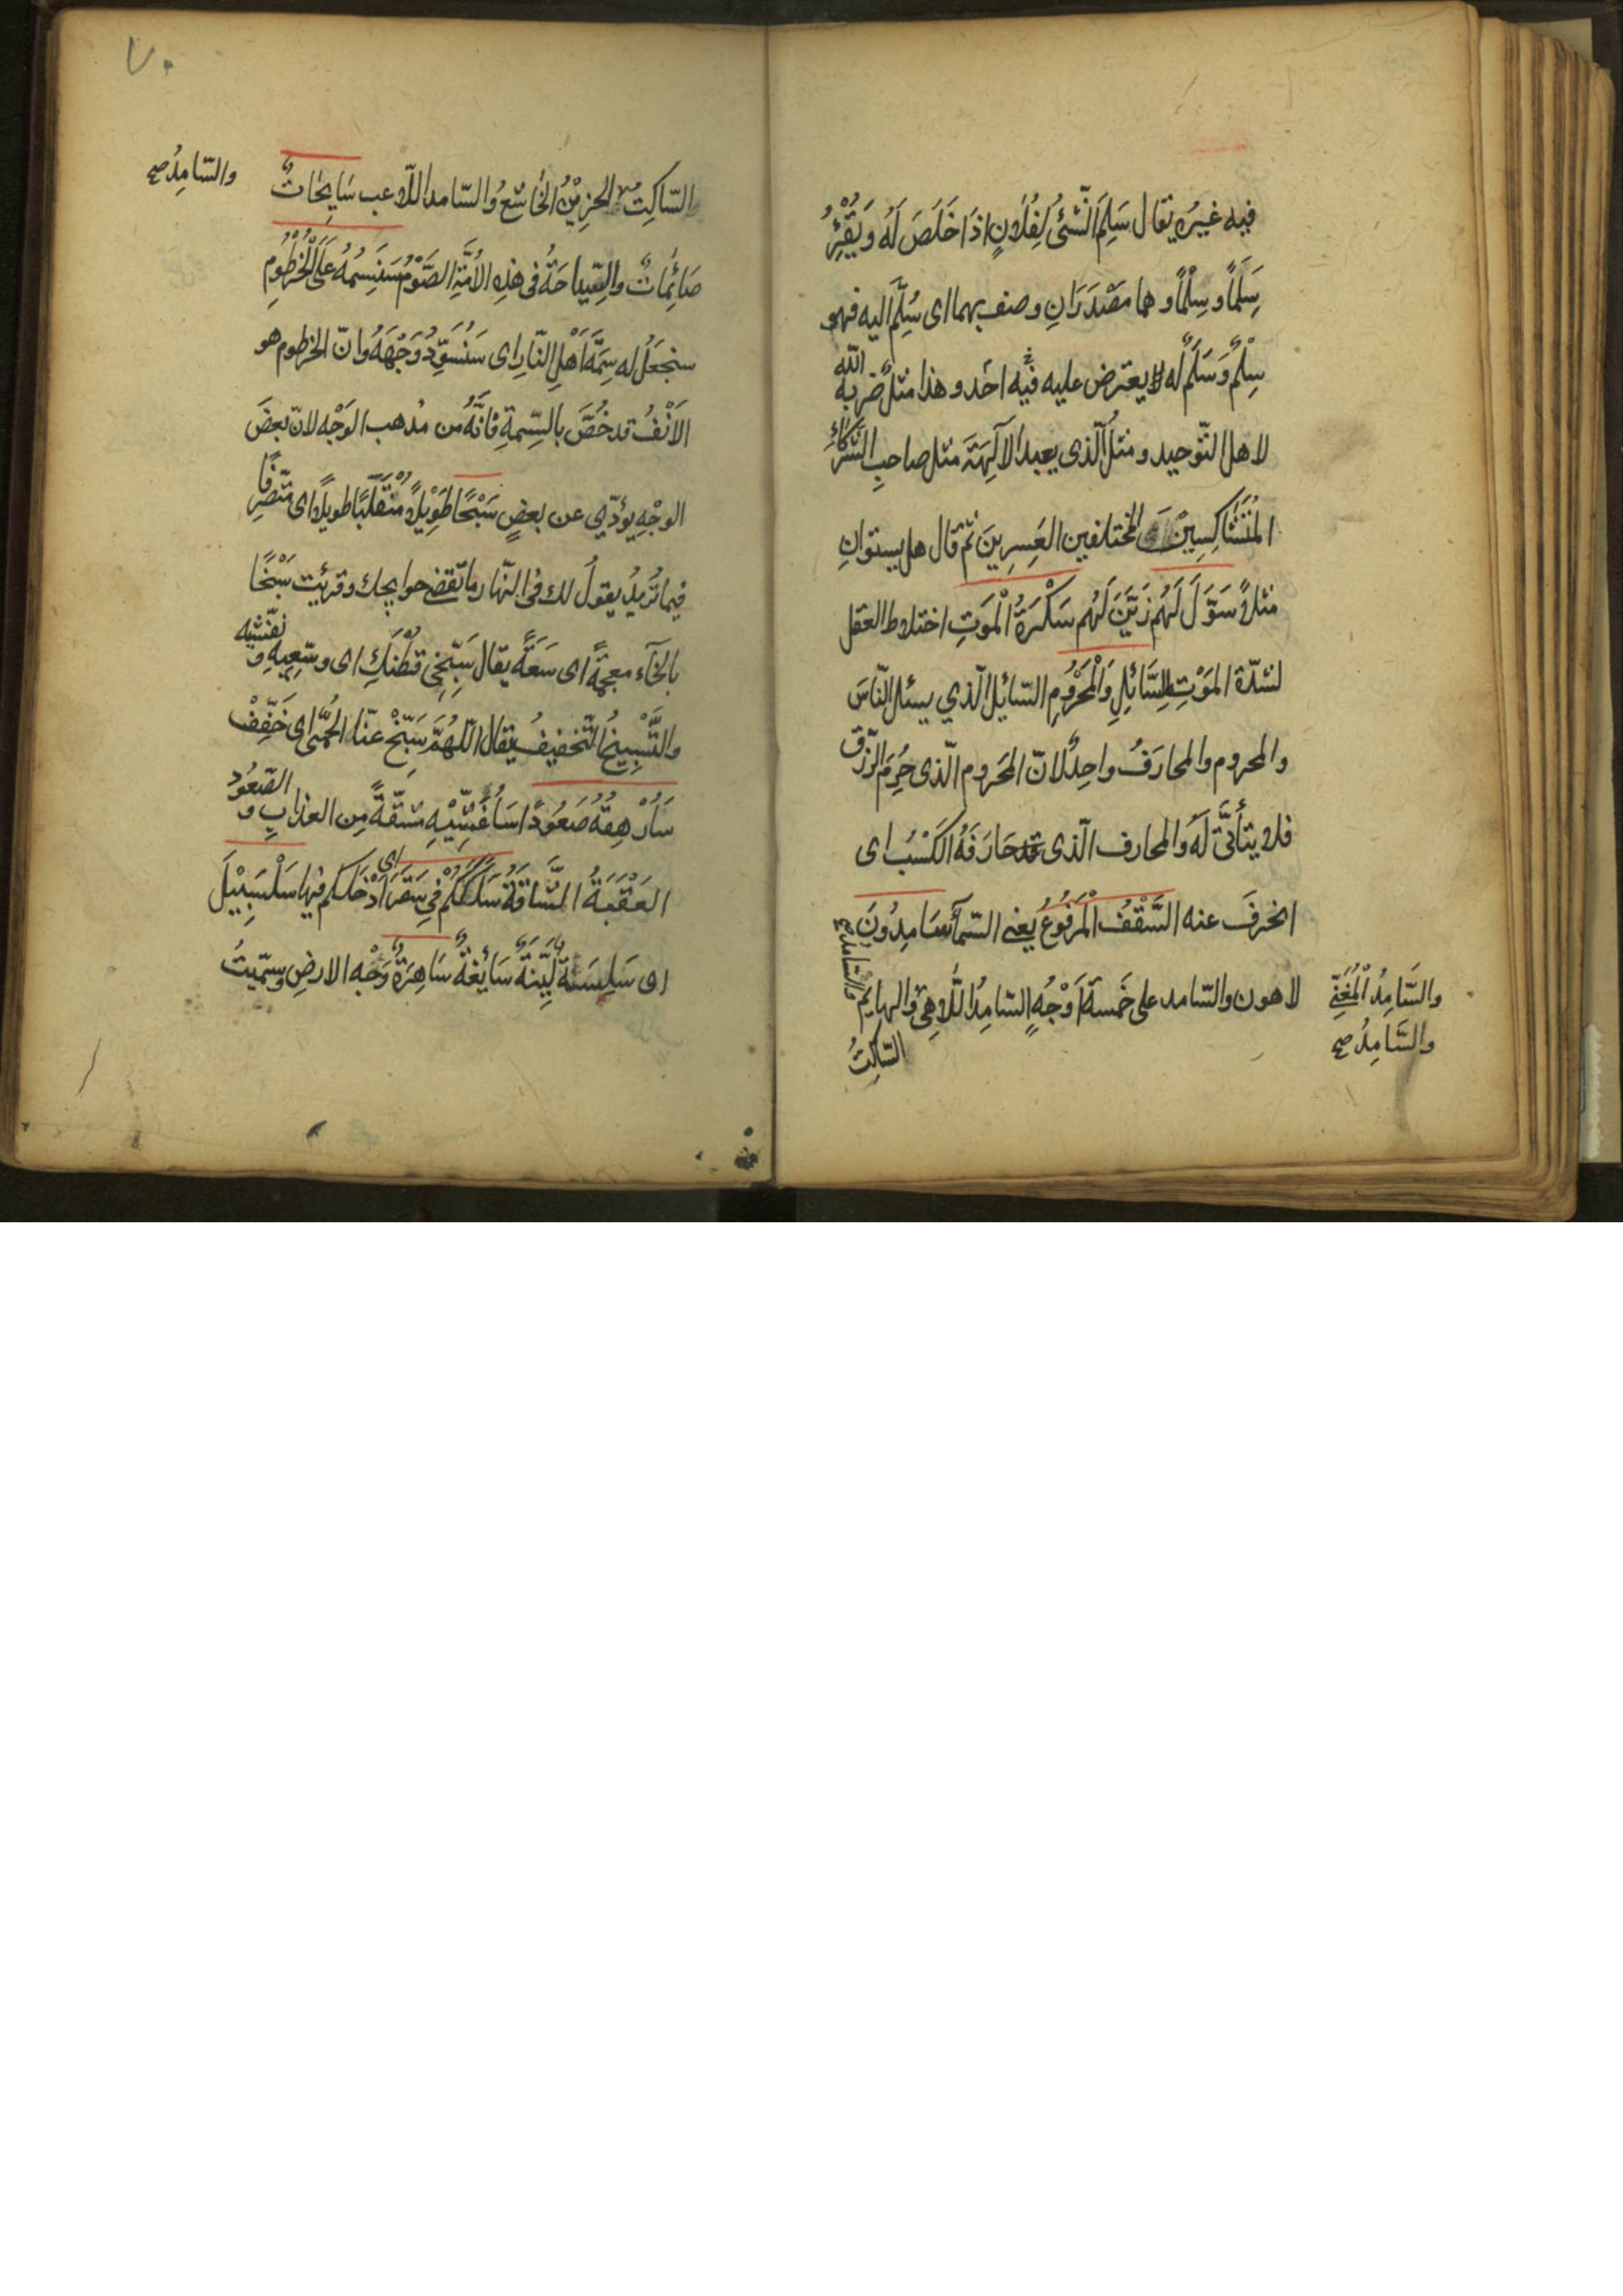 فيه غيره يقال سَلِمَ الشَّئُ لِفُلَانٍ اِذَا خَلَصَ لَهُ وَيُقْرَءُ
سَلَمًا وسِلْمًا وهما مَصْدَرَانِ وصف بهما اى سُلِّمَ اليه فهو
سِلْمٌ وَسَلَمٌ له لا يعترض عليه فيه احد وهذا مثلٌ ضربه الله
لاهل التّوحيد ومثلُ الّذى يعبد الآلِهَةَ مثل صاحبِ الشُّرَكَاءِ
المُتَشَاكِسِيْنَ اى المختلفين العَسِرِينَ ثم قال هل يستوانِ
مثلاً سَوَّلَ لَهُم زَيَّنَ لَهُم سَكْرَةُ الْمَوتِ اختلاط العقل
لشدّة المَوْتِ لِلسَّائِلِ وَالْمَحْرُومِ السّايل الّذي يسئل النّاسَ
والمحروم والمحارَفُ واحِدٌ لانّ المَحروم الّذى حُرِمَ الرّزق
فلا يتأتّى لَهُ والمحارف الّذى قد حَارَفَهُ الكَسْبُ اى
انحرفَ عنه السَّقْفُ الْمَرْفُوعُ يعنى السّمآء سَامِدُونَ
لاهون والسّامد على خَمسة اَوْجُهٍ السّامِدُ اللَّاهِى والهايم
والسّامد صح
والسَّامِدُ الْمُغَنِّى
والسَّامِدُ صح
السّاكِتُ
٧٠
السّاكِتُ الحزِيْنُ الخَاشعُ والسّامد اللّاعب سَايِحَاتٌ
والسّامِدُ صح
صَائِمَاتٌ والسِّياحَةُ فى هذِهِ الاُمَّةِ الصَّوْمُ سَنَسِمُهُ عَلَى الْخُرْطُومِ
سنجعَلُ له سِمَةَ اَهْلِ النّارِ اى سَنُسَوِّدُ وَجْهَهُ وانّ الخرطوم هو
الاَنْفُ قد خُصَّ بالسِّمةِ فَانَّهُ من مذهب الوَجْه لانّ بعضَ
الوجْهِ يؤدّي عن بعضٍ سَبْحًا طَوِيْلًا مُتَقَلَّبًا طويلًا اى متصرفًا
فيما تُرِيدُ يقولُ لك فى النّهار ما تقضى حوايجك وقرئت سَبْخًا
بالخآء معجمةً اى سَعَةً يقال سَبِّخِى قُطْنَكِ اى وسّعِيهِ ونفّشيه
والتَّسْبِيخُ التّخفيفُ يقال اللّهُمَّ سَبِّخْ عنّا الحُمَّى اى خَفِّفْ
سَاُرْهِقُهُ صَعُوْدًا سَاُغْشِيْهِ مشقّةً مِن العذابِ والصّعُودُ
العَقَبَةُ الشَّاقَّةُ سَلَكَكُمْ فِى سَقَرَ اى اَدْخَلكم فيها سَلْسَبِيْلَ
اى سَلِسَةً لَيِّنَةً سَائِغَةً سَاهِرَةٌ وَجْه الارضِ وسمّيتُ